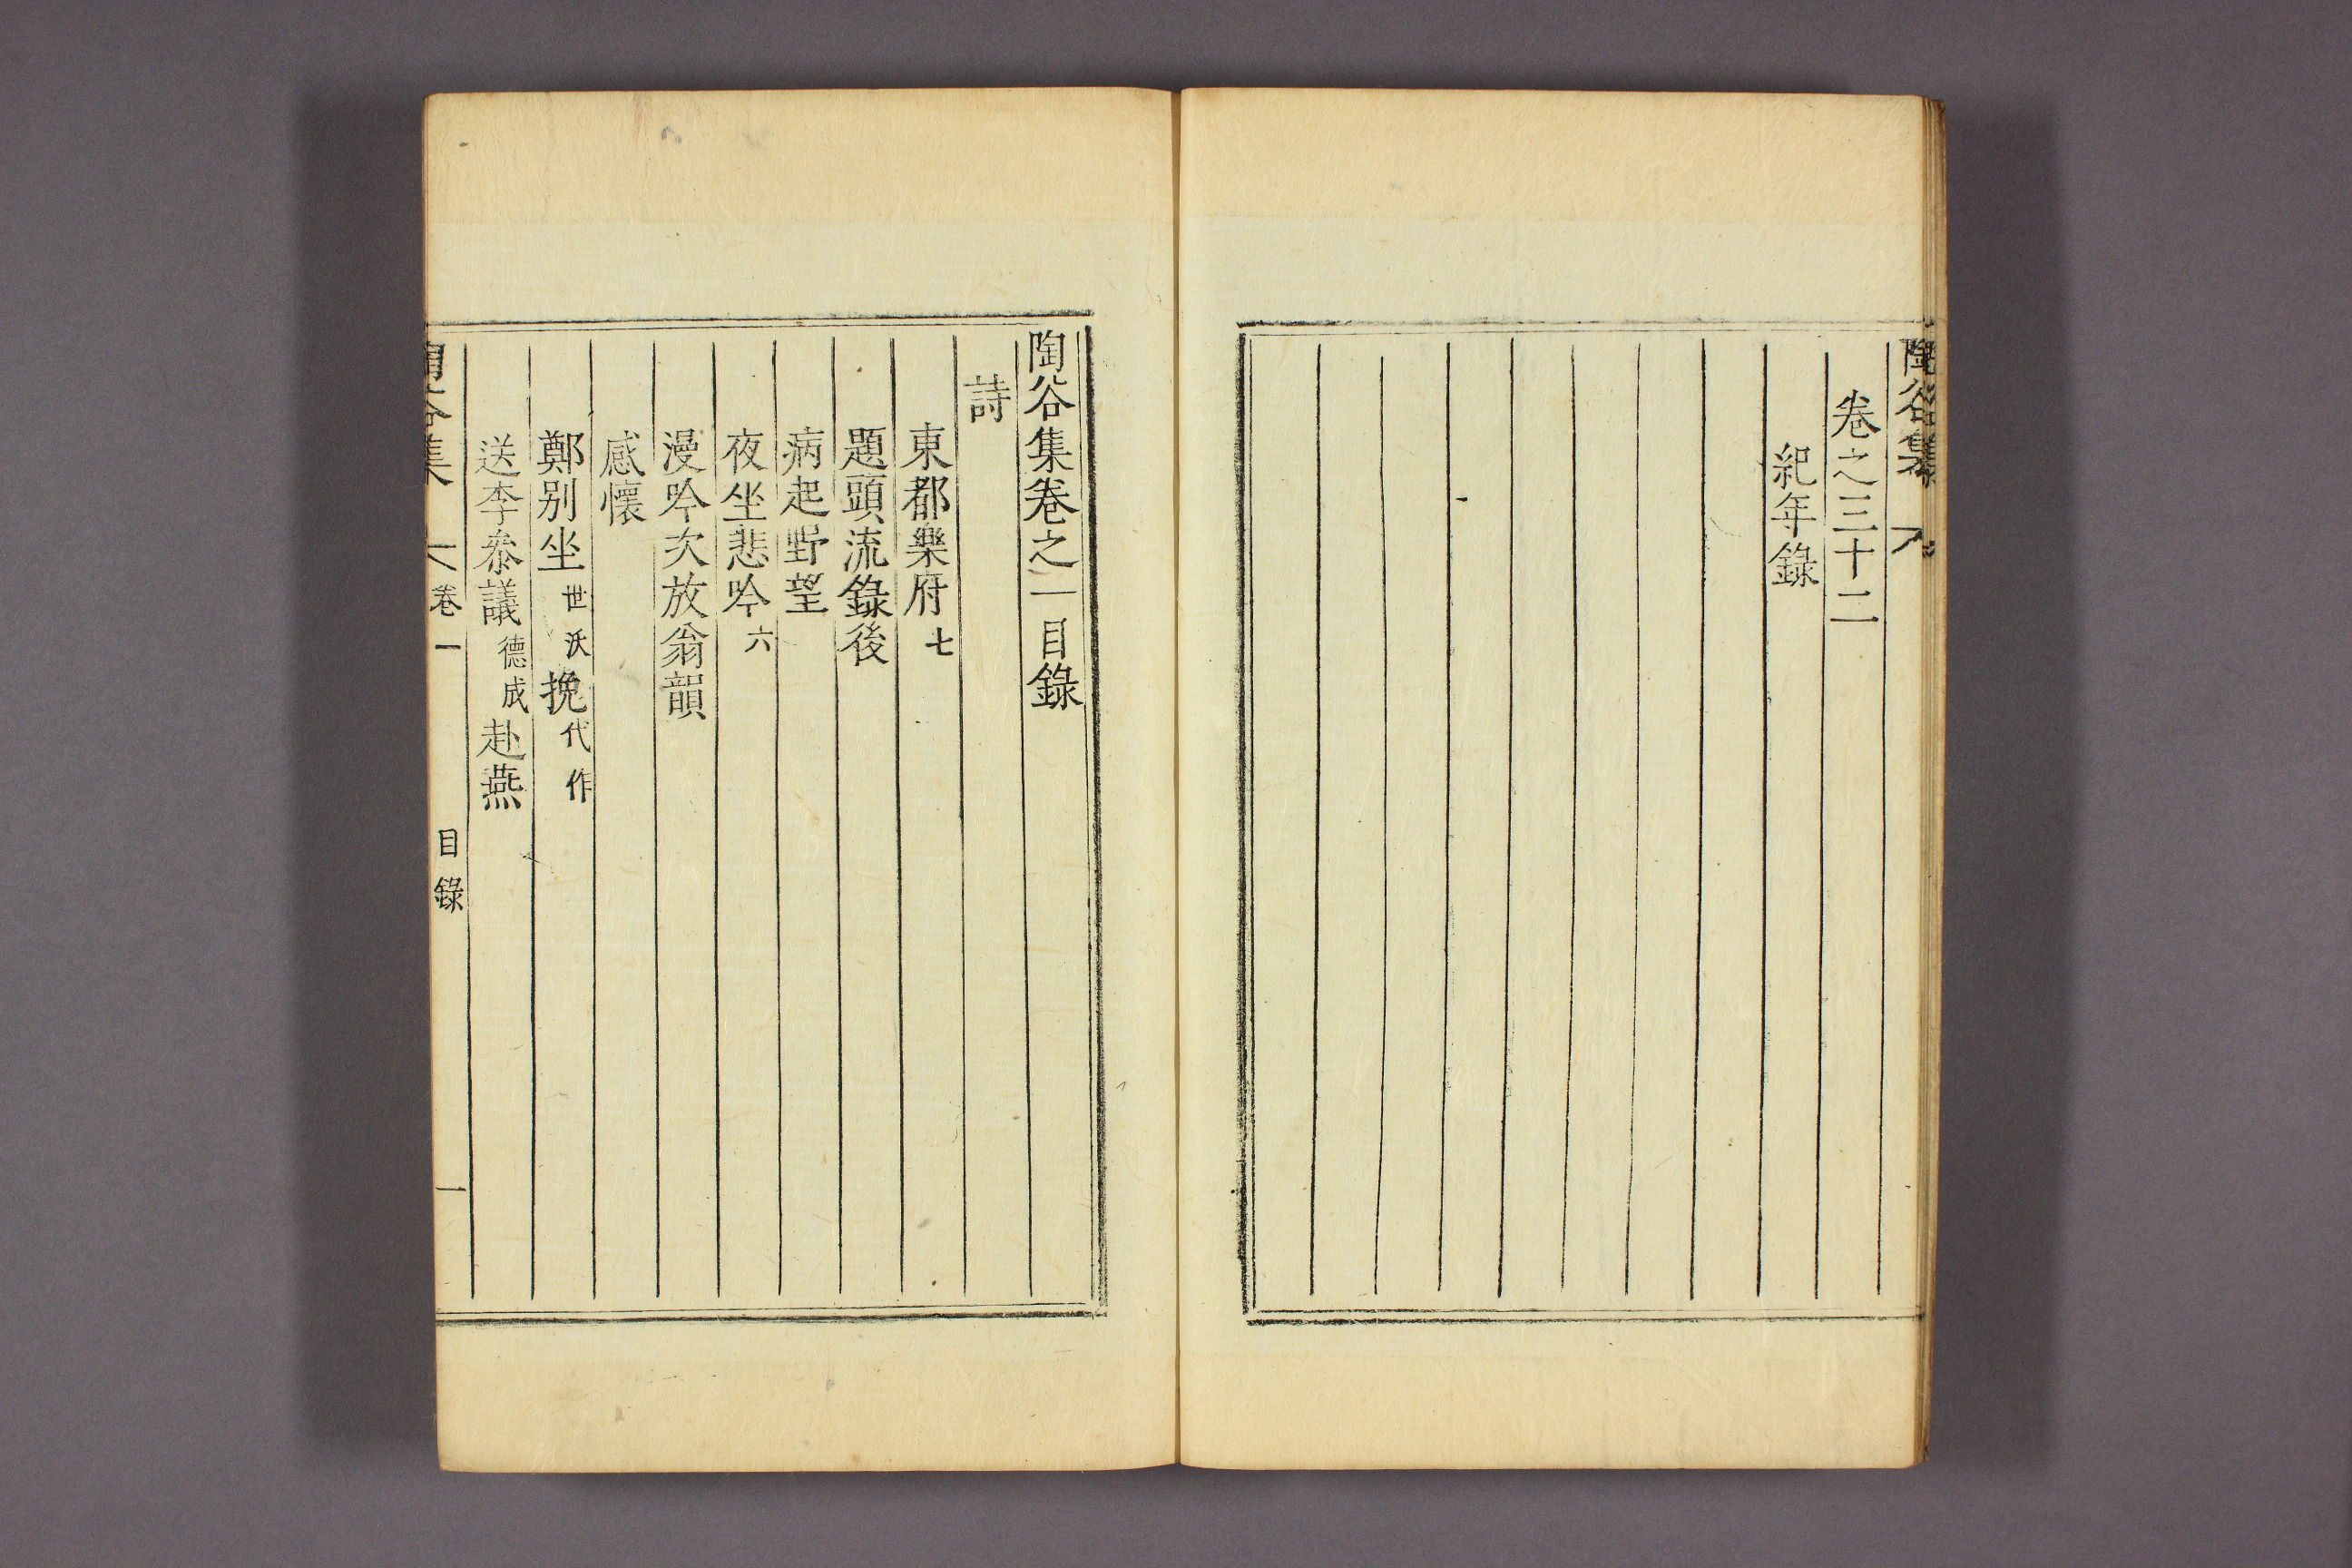 陶谷集
卷之三十二
紀年錄
陶谷集卷之一目錄
詩
東都樂府七
題頭流錄後
病起野望
夜坐悲吟六
漫吟次放翁韻
感懷
鄭別坐世沃挽代作
送李叅議德成赴燕
陶谷集 卷一 目錄 一